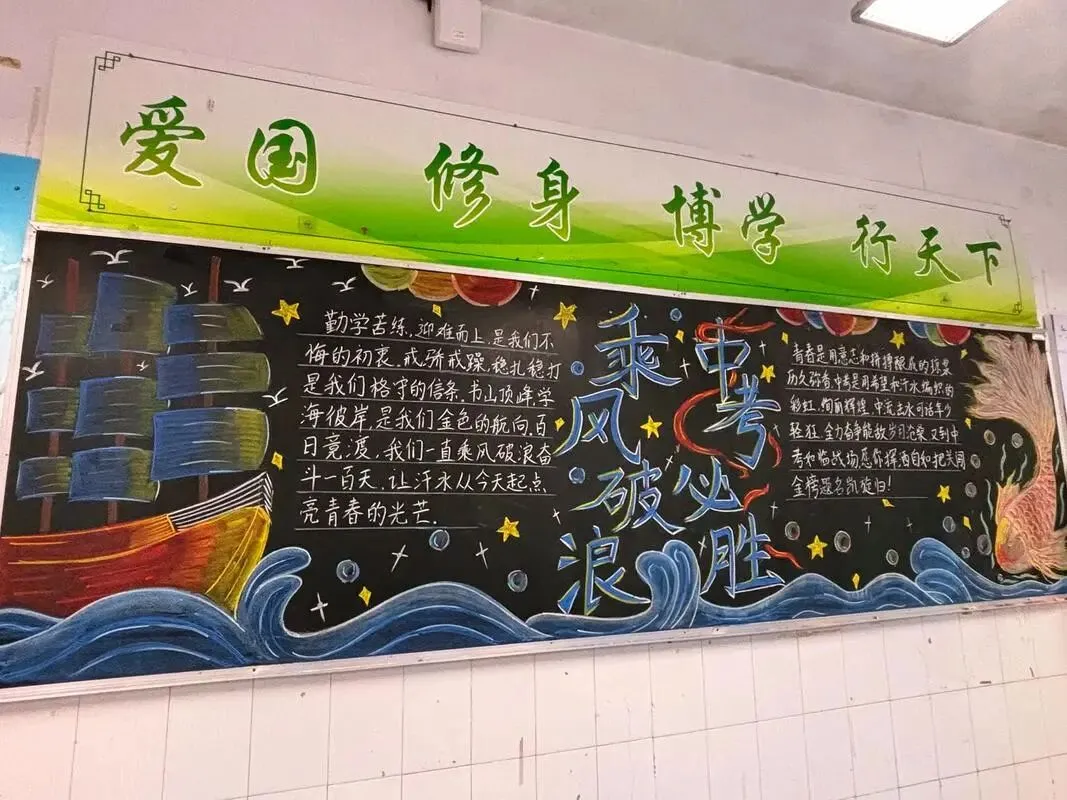 爱国 修身 博学 行天下
勤学苦练,迎难而上,是我们不
悔的初衷,戒骄戒躁,稳扎稳打
是我们恪守的信条,书山顶峰,学
海彼岸,是我们金色的航向,百
日竞渡,我们一直乘风破浪奋
斗一百天,让汗水从今天起点
亮青春的光芒.
乘风破浪
中考必胜
青春是用意志和拼搏酿成的琼浆
历久弥香,中考是用希望和汗水编织的
彩虹,绚丽辉煌,中流击水可话年少
轻狂,全力奋争能敌岁月沧桑,又到中
考和临战场愿你挥洒自和把关闯
金榜题名凯旋归!